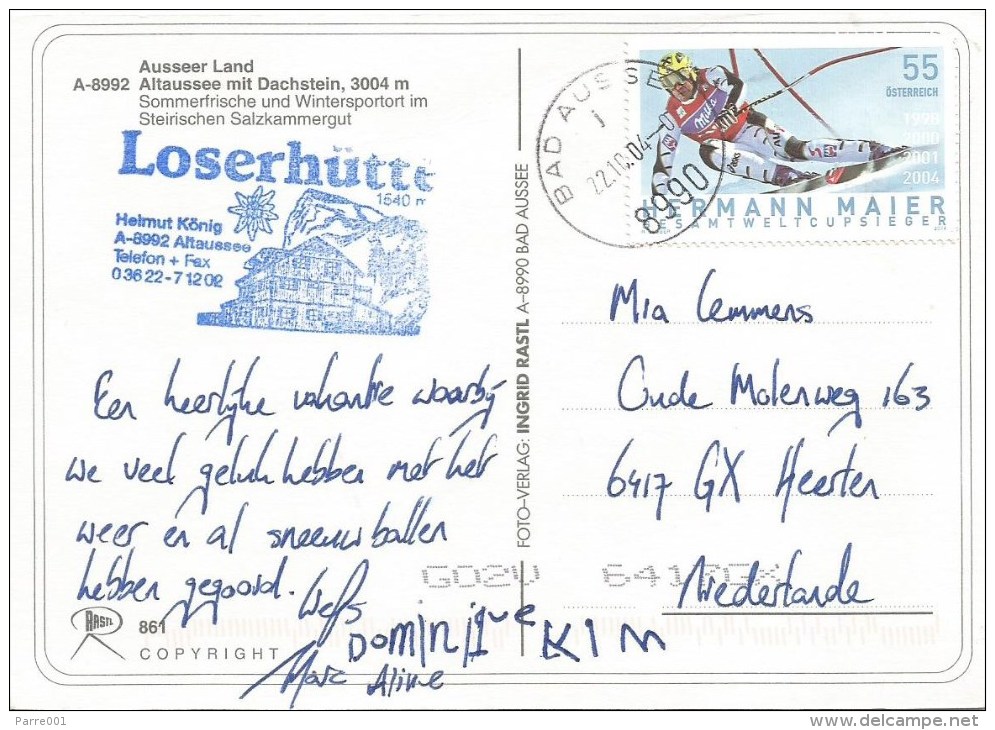 Ausseer Land
A-8992 Altaussee mit Dachstein, 3004 m
Sommerfrische und Wintersportort im
Steirischen Salzkammergut
Loserhütte
1540 m
Helmut König
A-8992 Altaussee
Telefon + Fax
03622-71202
Een heerlijke vakantie waarbij
we veel geluk hebben met het
weer en al sneeuwballen
hebben gegooid.
Dominique KIM
Marc Aline
RASTL
861
COPYRIGHT
FOTO-VERLAG: INGRID RASTL A-8990 BAD AUSSEE
BAD AUSSEE
1
22.10.04
8990
55
ÖSTERREICH
1998
2000
2001
2004
Milka
HERMANN MAIER
GESAMTWELTCUPSIEGER
Mia Lemmens
Oude Molenweg 163
6417 GX Heerlen
Niederlande
Parre001
www.delcampe.net